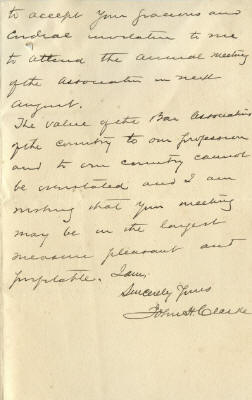 to accept your gracious and
cordial invitation to me
to attend the annual meeting
of the Association in next
August.
The value of the Bar Associations
of the country to our profession
and to our country cannot
be overstated and I am
wishing that your meeting
may be in the largest
measure pleasant and
profitable. I am,
Sincerely Yours
John H Clarke